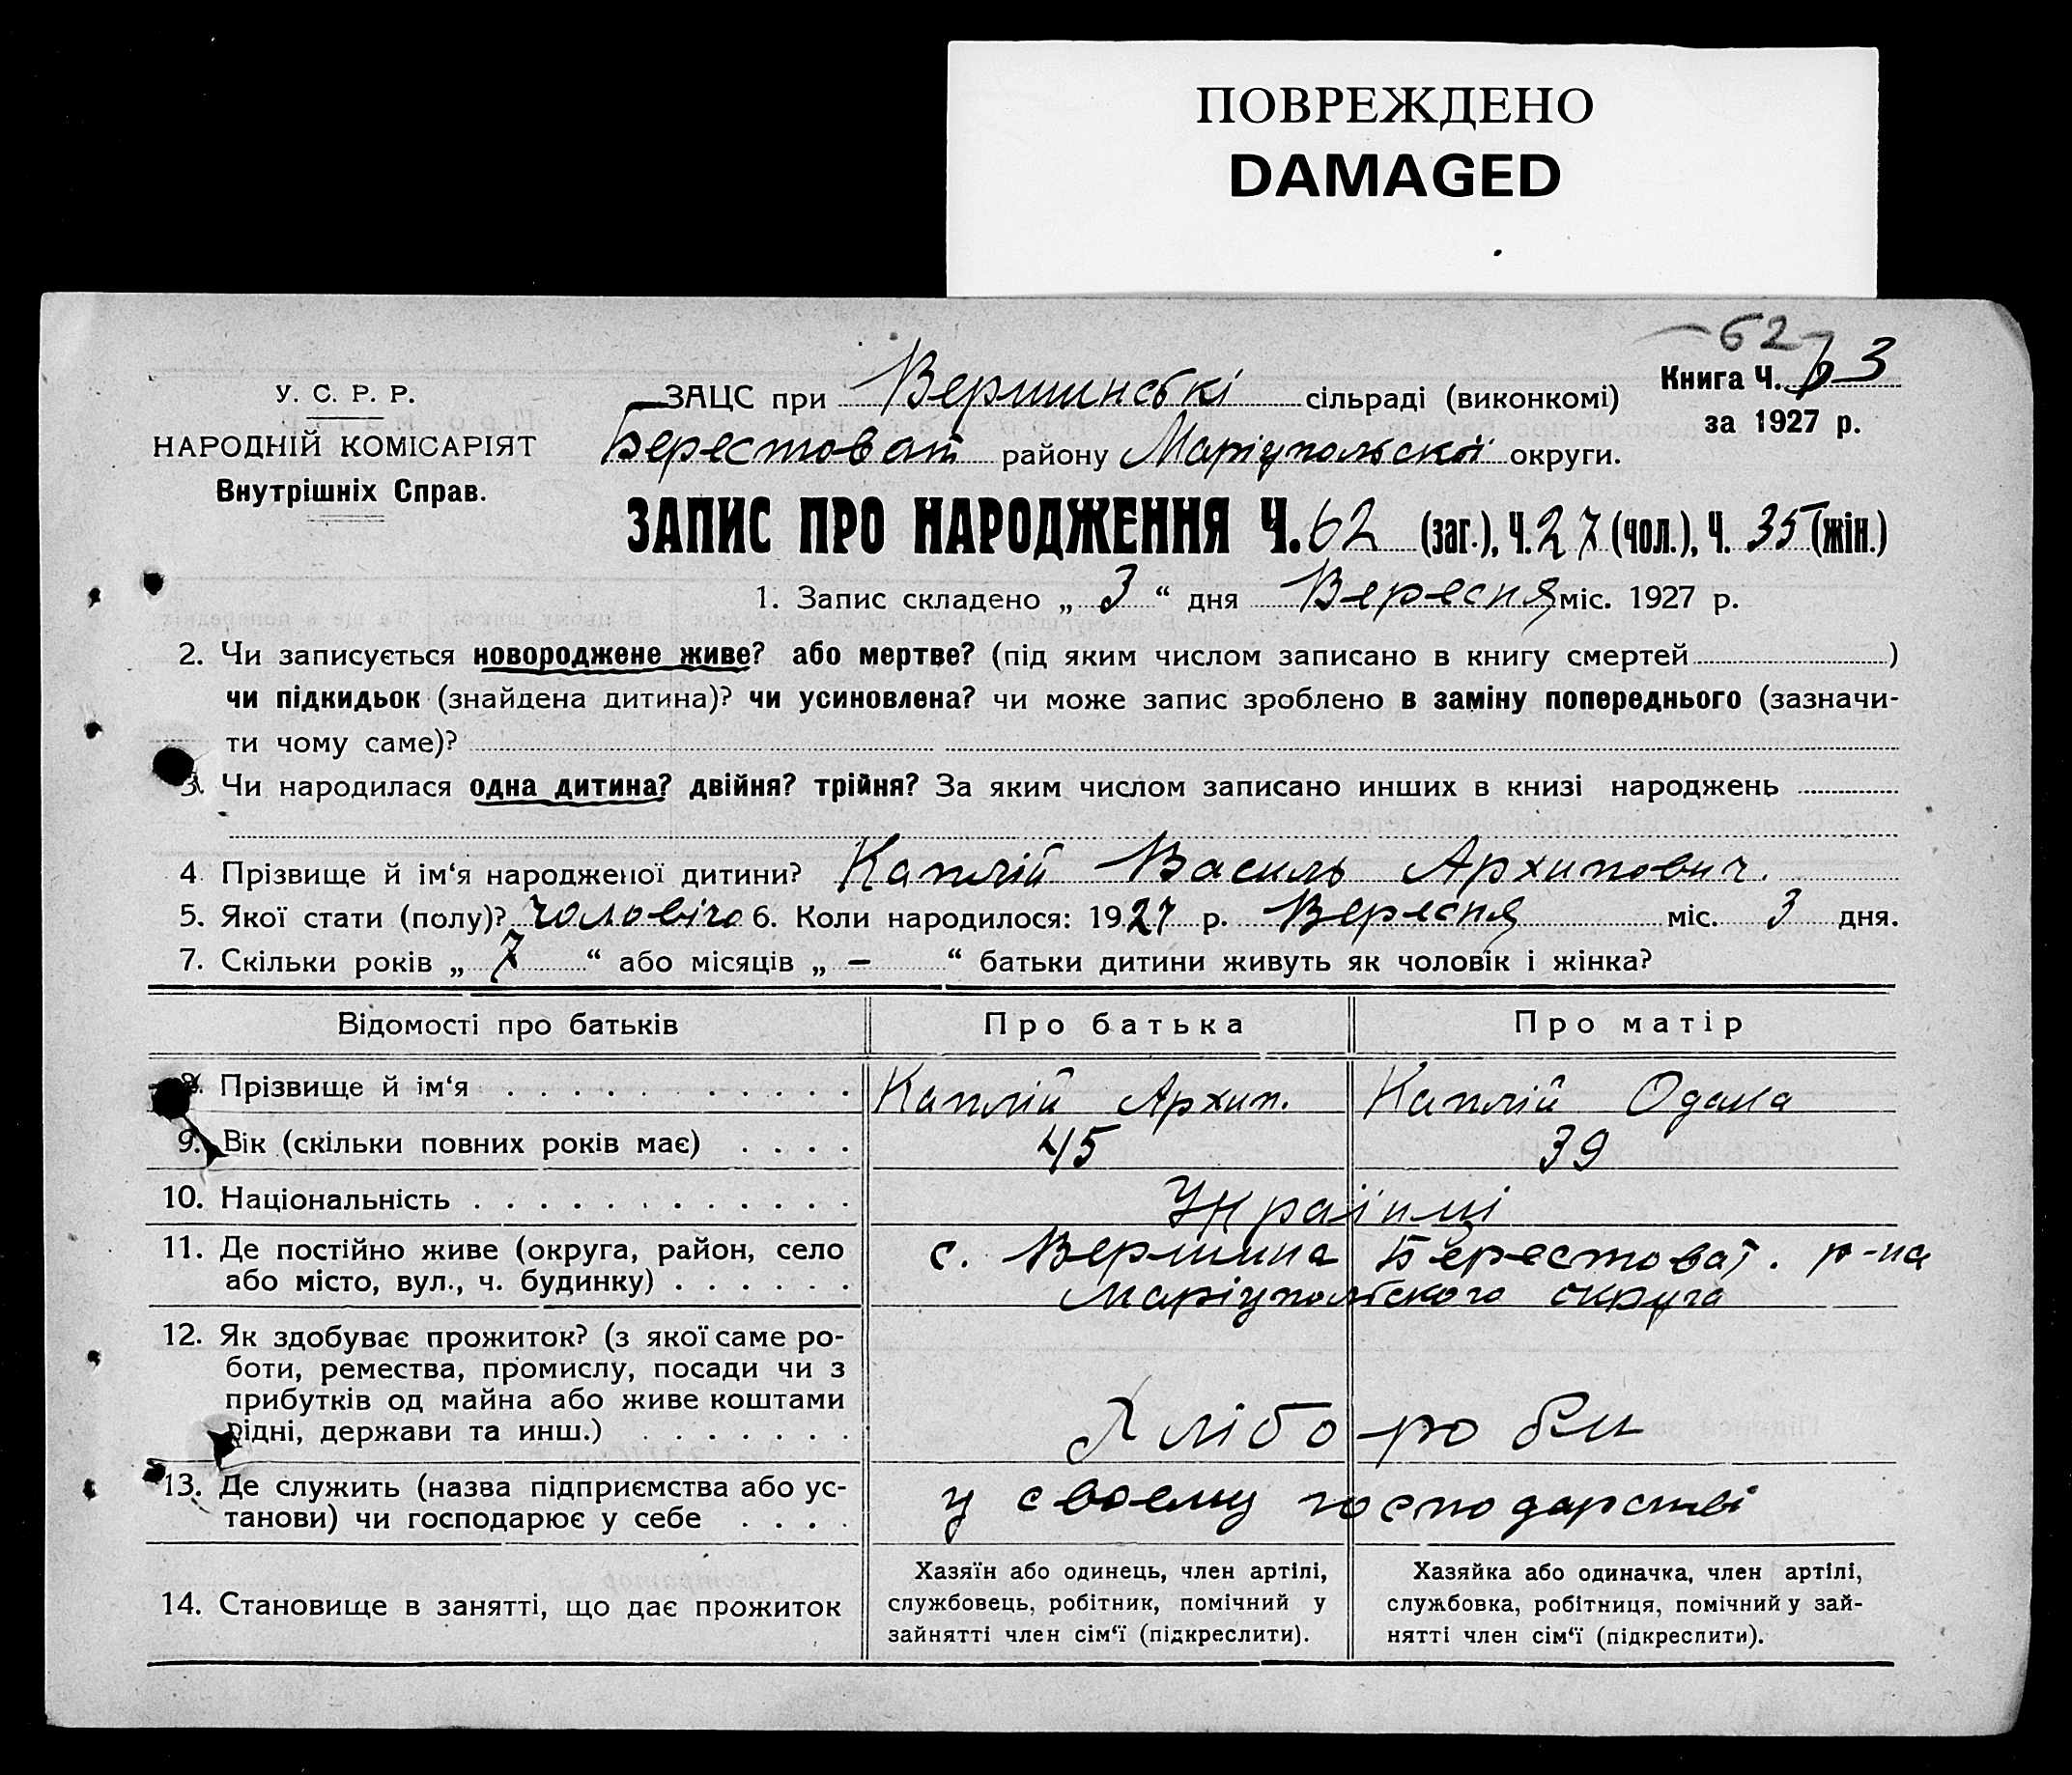 ПОВРЕЖДЕНО
DAMAGED
62
У. С. Р. Р.
НАРОДНІЙ КОМІСАРІЯТ
Внутрішніх Справ.
ЗАЦС при Вершинські сільраді (виконкомі)
Берестоват району Маріупольской округи.
Книга Ч. 63
за 1927 р.
ЗАПИС ПРО НАРОДЖЕННЯ Ч. 62 (заг.), Ч. 27 (чол.), Ч. 35 (жін.)
1. Запис складено „ 3 “ дня Вересня міс. 1927 р.
2. Чи записується новороджене живе? або мертве? (під яким числом записано в книгу смертей )
чи підкидьок (знайдена дитина)? чи усиновлена? чи може запис зроблено в заміну попереднього (зазначи-
ти чому саме)?
3. Чи народилася одна дитина? двійня? трійня? За яким числом записано инших в книзі народжень
4. Прізвище й ім‘я народженої дитини? Каплій Василь Архипович.
5. Якої стати (полу)? чоловічо 6. Коли народилося: 1927 р. Вересня міс. 3 дня.
7. Скільки років „ 7 “ або місяців „ – “ батьки дитини живуть як чоловік і жінка?
Відомості про батьків Про батька Про матір
8. Прізвище й ім‘я Каплій Архип. Каплій
9. Вік (скільки повних років має) 45 39
10. Національність Українці
11. Де постійно живе (округа, район, село с. Вершина Берестоват. р-на
або місто, вул., ч. будинку) Маріупольского округа
12. Як здобуває прожиток? (з якої саме ро-
боти, ремества, промислу, посади чи з
прибутків од майна або живе коштами
рідні, держави та инш.) Хлібороби
13. Де служить (назва підприємства або ус- у своему господарстві
танови) чи господарює у себе
14. Становище в занятті, що дає прожиток
Хазяїн або одинець, член артілі,
службовець, робітник, помічний у
зайнятті член сім‘ї (підкреслити).
Хазяйка або одиначка, член артілі,
службовка, робітниця, помічний у зай-
нятті член сім‘ї (підкреслити).